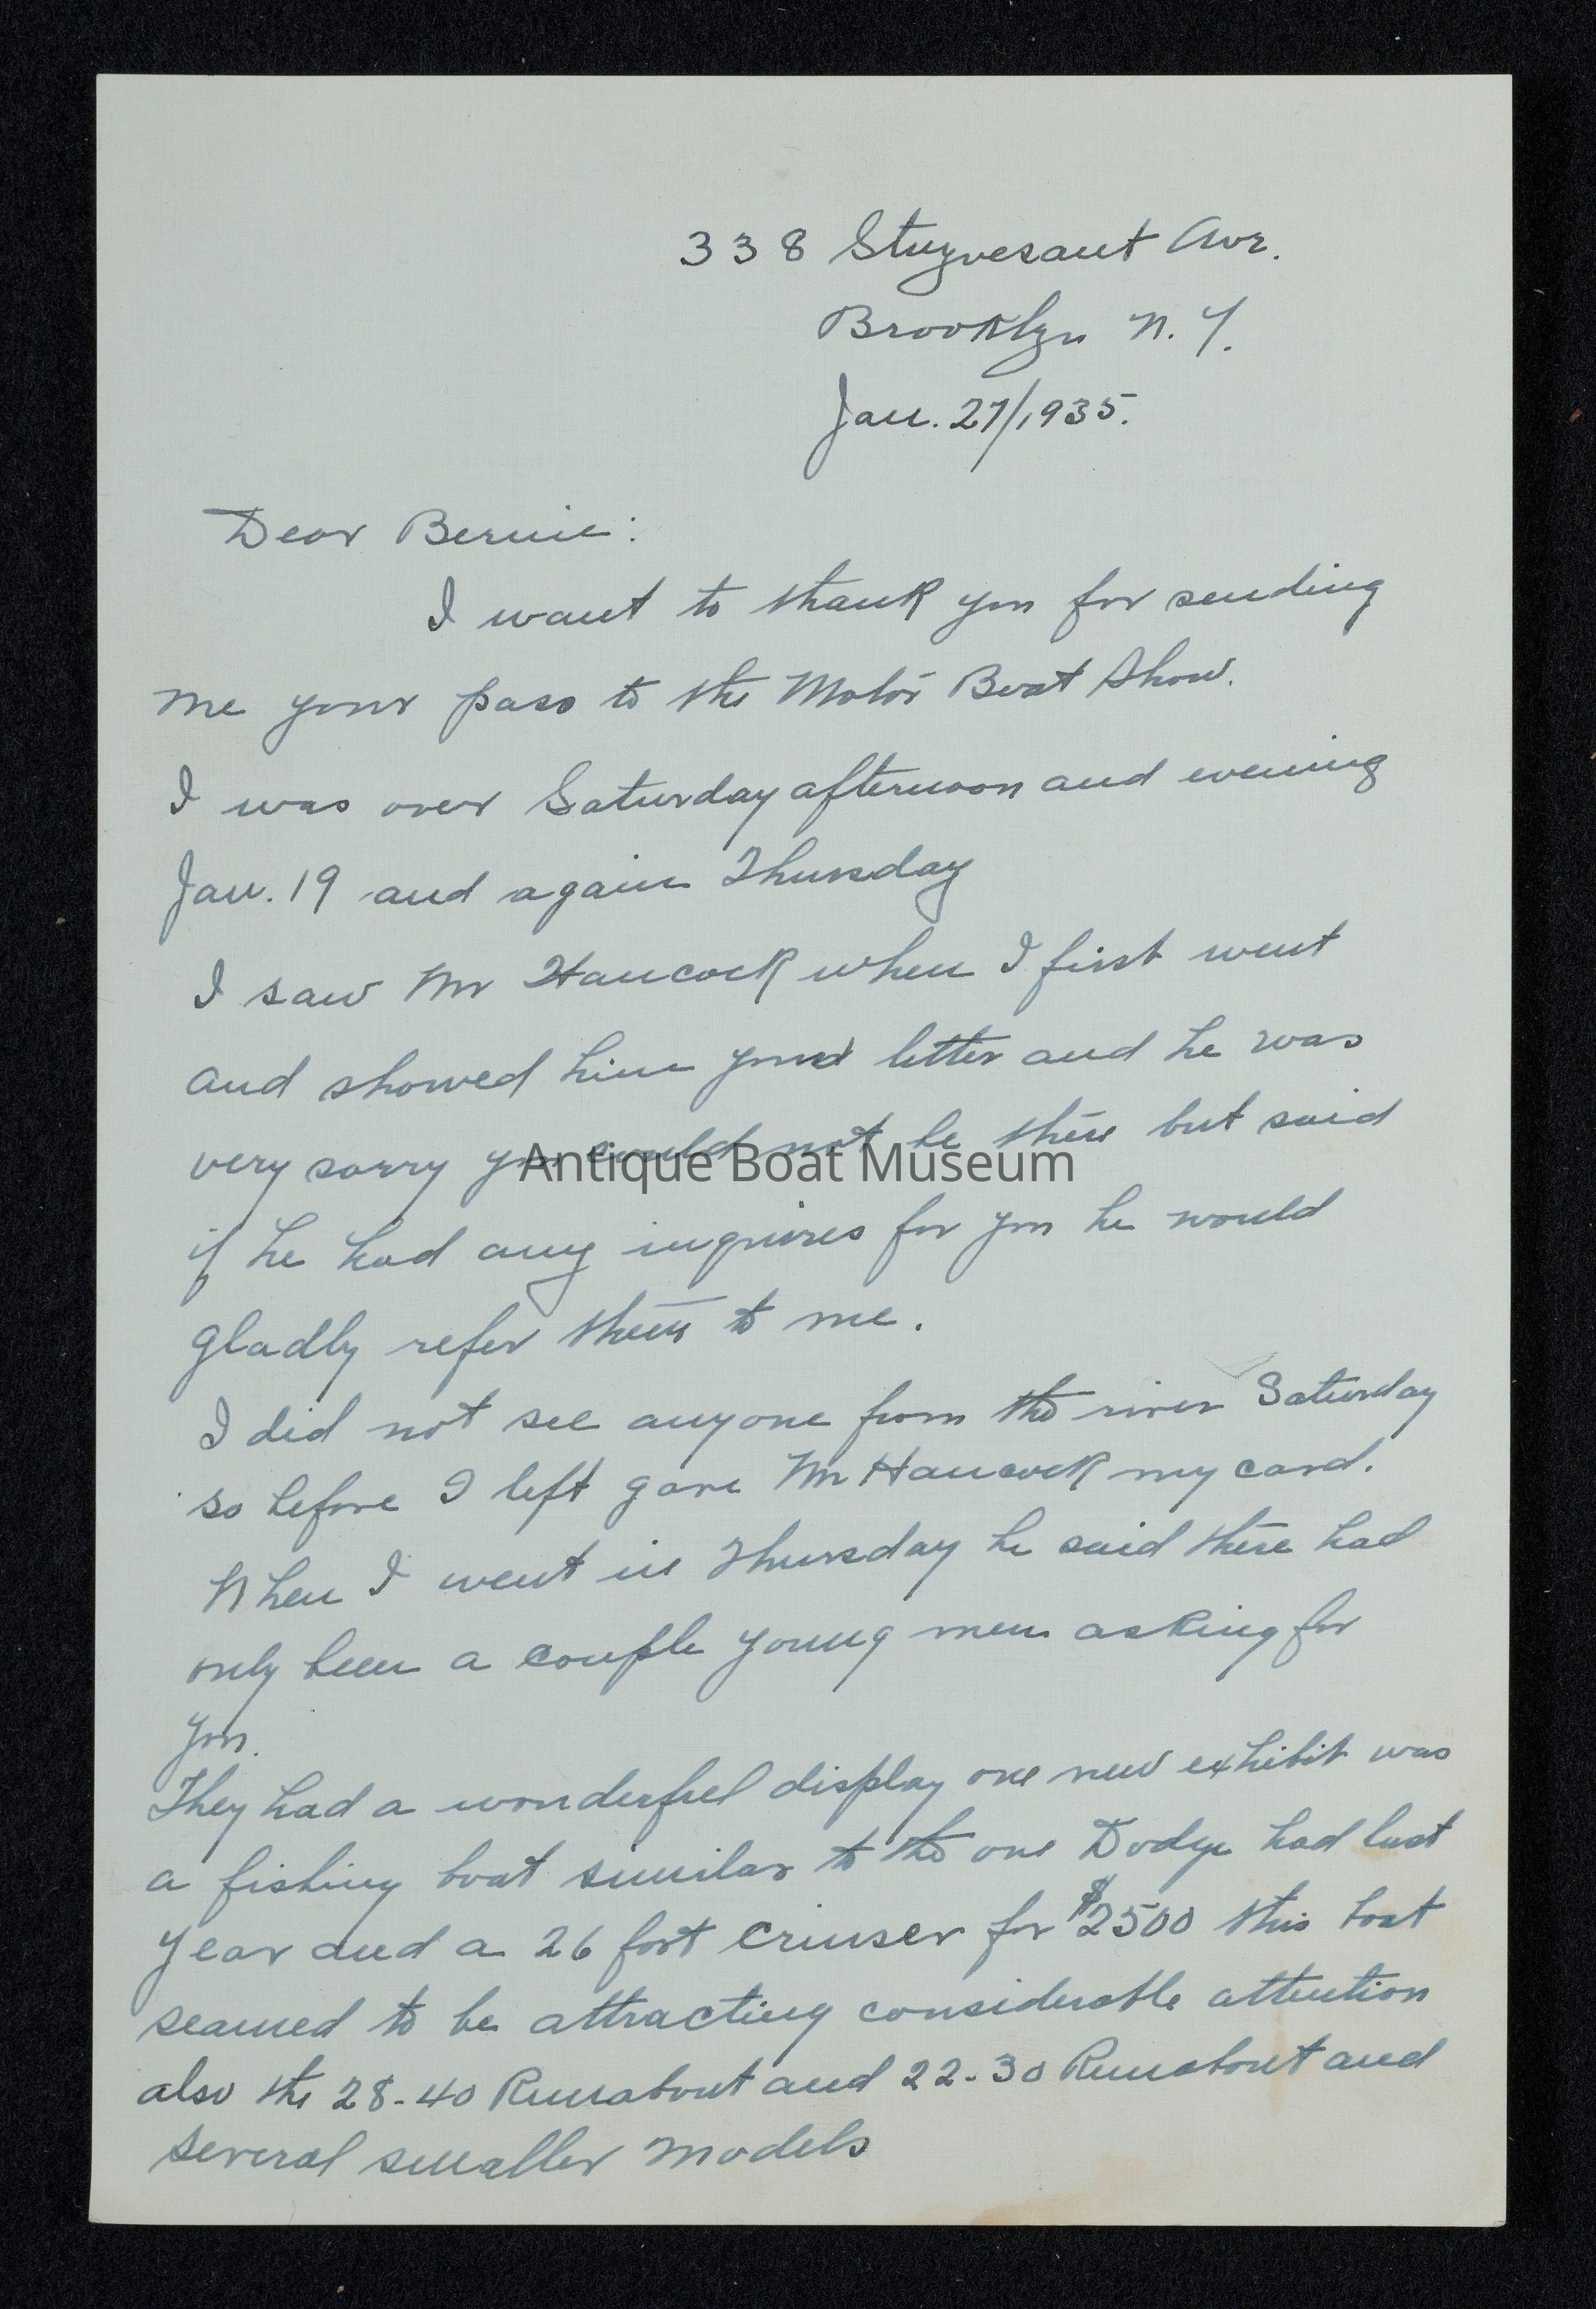 338 Stuyvesant Ave.
Brooklyn N.Y.
Jan. 27/1935.
Dear Bernie:
I want to thank you for sending
me your pass to the Motor Boat Show.
I was over Saturday afternoon and evening
Jan. 19 and again Thursday
I saw Mr Hancock when I first went
and showed him your letter and he was
very sorry you could not be there but said
Antique Boat Museum
if he had any inquires for you he would
gladly refer them to me.
I did not see anyone from the river Saturday
so before I left gave Mr Hancock my card.
When I went in Thursday he said there had
only been a couple young men asking for
you.
They had a wonderful display one new exhibit was
a fishing boat similar to the one Dodge had last
year and a 26 foot cruiser for $2500 this boat
seamed to be attracting considerable attention
also the 28-40 Runabout and 22-30 Runabout and
several smaller models